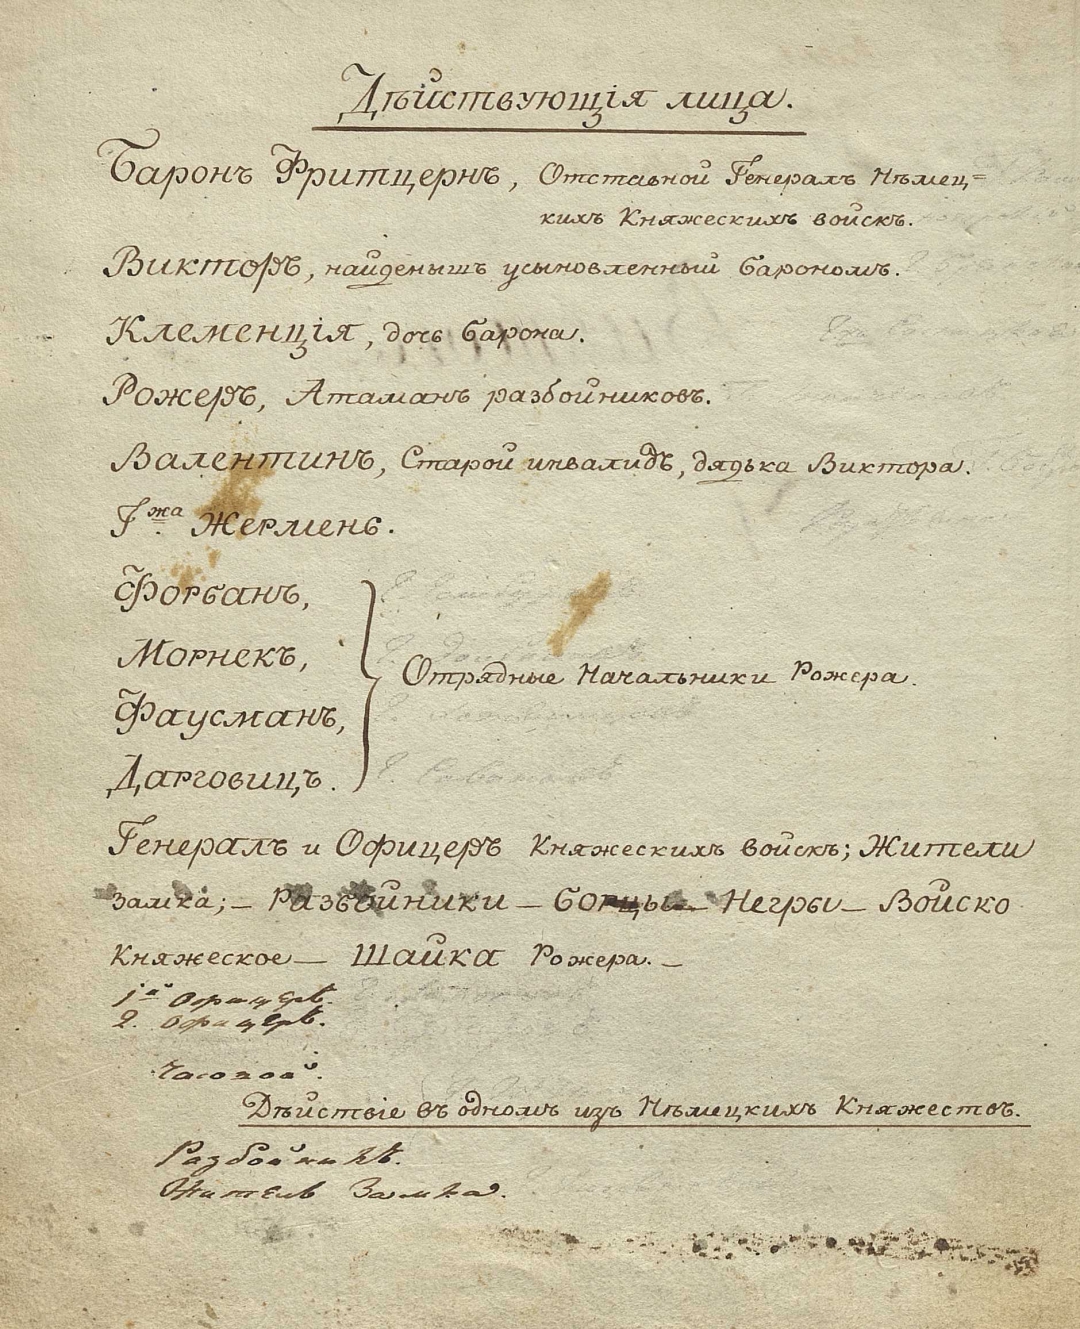 Дѣйствующія лица.
Баронъ Фритцернъ, Отставной Генералъ Нѣмец=
кихъ Княжескихъ войскъ.
Викторъ, найденышъ усыновленный Барономъ.
Клеменція, дочь Барона.
Рожеръ, Атаманъ разбойниковъ.
Валентинъ, Старой инвалидъ, дядька Виктора.
Гжа Жерменъ.
Форбанъ,
Морнекъ,
Отрядные Начальники Рожера.
Фаусманъ,
Дарговицъ.
Генералъ и Офицеръ Княжескихъ войскъ; Жители
Замка; — Разбойники — Борцы — Негры — Войско
Княжеское — Шайка Рожера. —
1й Офицеръ.
2. Офицеръ.
Часовой.
Дѣйствіе въ одномъ изъ Нѣмецкихъ Княжествъ.
Разбойникъ.
Житель Замка.